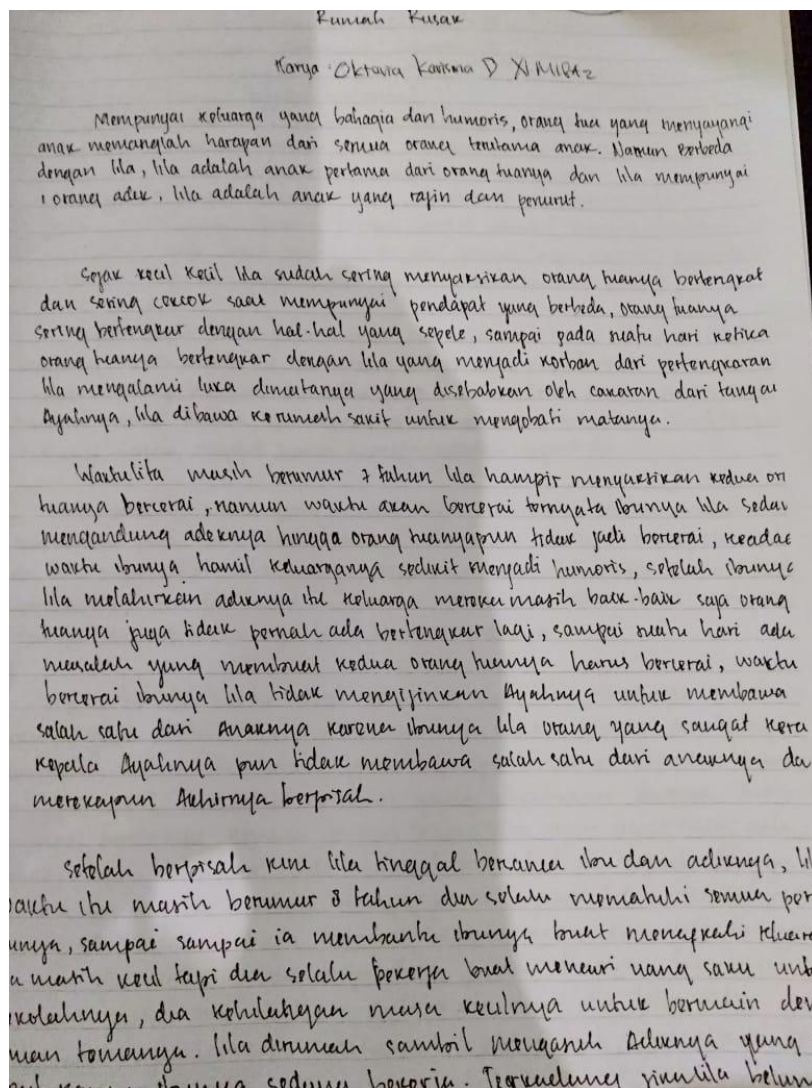 Rumah Rusak
Karya : Oktavia Karisma D XI MIPA2
Mempunyai keluarga yang bahagia dan humoris, orang tua yang menyayangi
anak memanglah harapan dari semua orang terutama anak. Namun berbeda
dengan lila, lila adalah anak pertama dari orang tuanya dan lila mempunyai
1 orang adik, lila adalah anak yang rajin dan penurut.
Sejak kecil kecil lila sudah sering menyaksikan orang tuanya bertengkar
dan sering cekcok saat mempunyai pendapat yang berbeda, orang tuanya
sering bertengkar dengan hal-hal yang sepele, sampai pada suatu hari ketika
orang tuanya bertengkar dengan lila yang menjadi korban dari pertengkaran
lila mengalami luka dimatanya yang disebabkan oleh cakaran dari tangan
Ayahnya, lila dibawa kerumah sakit untuk mengobati matanya.
Waktu lila masih berumur 7 tahun lila hampir menyaksikan kedua or
tuanya bercerai, namun waktu akan bercerai ternyata ibunya lila sedan
mengandung adeknya hingga orang tuanyapun tidak jadi bercerai, keadaa
waktu ibunya hamil keluarganya sedikit menjadi humoris, setelah ibunya
lila melahirkan adiknya itu keluarga mereka masih baik-baik saja orang
tuanya juga tidak pernah ada bertengkar lagi, sampai suatu hari ada
masalah yang membuat kedua orang tuanya harus bercerai, waktu
bercerai ibunya lila tidak mengijinkan Ayahnya untuk membawa
salah satu dari Anaknya karena ibunya lila orang yang sangat kera
kepala Ayahnya pun tidak membawa salah satu dari anaknya da
merekapun Akhirnya berpisah.
Setelah berpisah kini lila tinggal bersama ibu dan adiknya, lil
waktu itu masih berumur 8 tahun dia selalu mematuhi semua per
unya, sampai sampai ia membantu ibunya buat menafkahi keluar
a masih kecil tapi dia selalu bekerja buat mencari uang saku unt
ekolahnya, dia kehilangan masa kecilnya untuk bermain den
man temanya. lila dirumah sambil mengasuh Adiknya yang
ibunya sedang bekerja. Terkadang lila belum